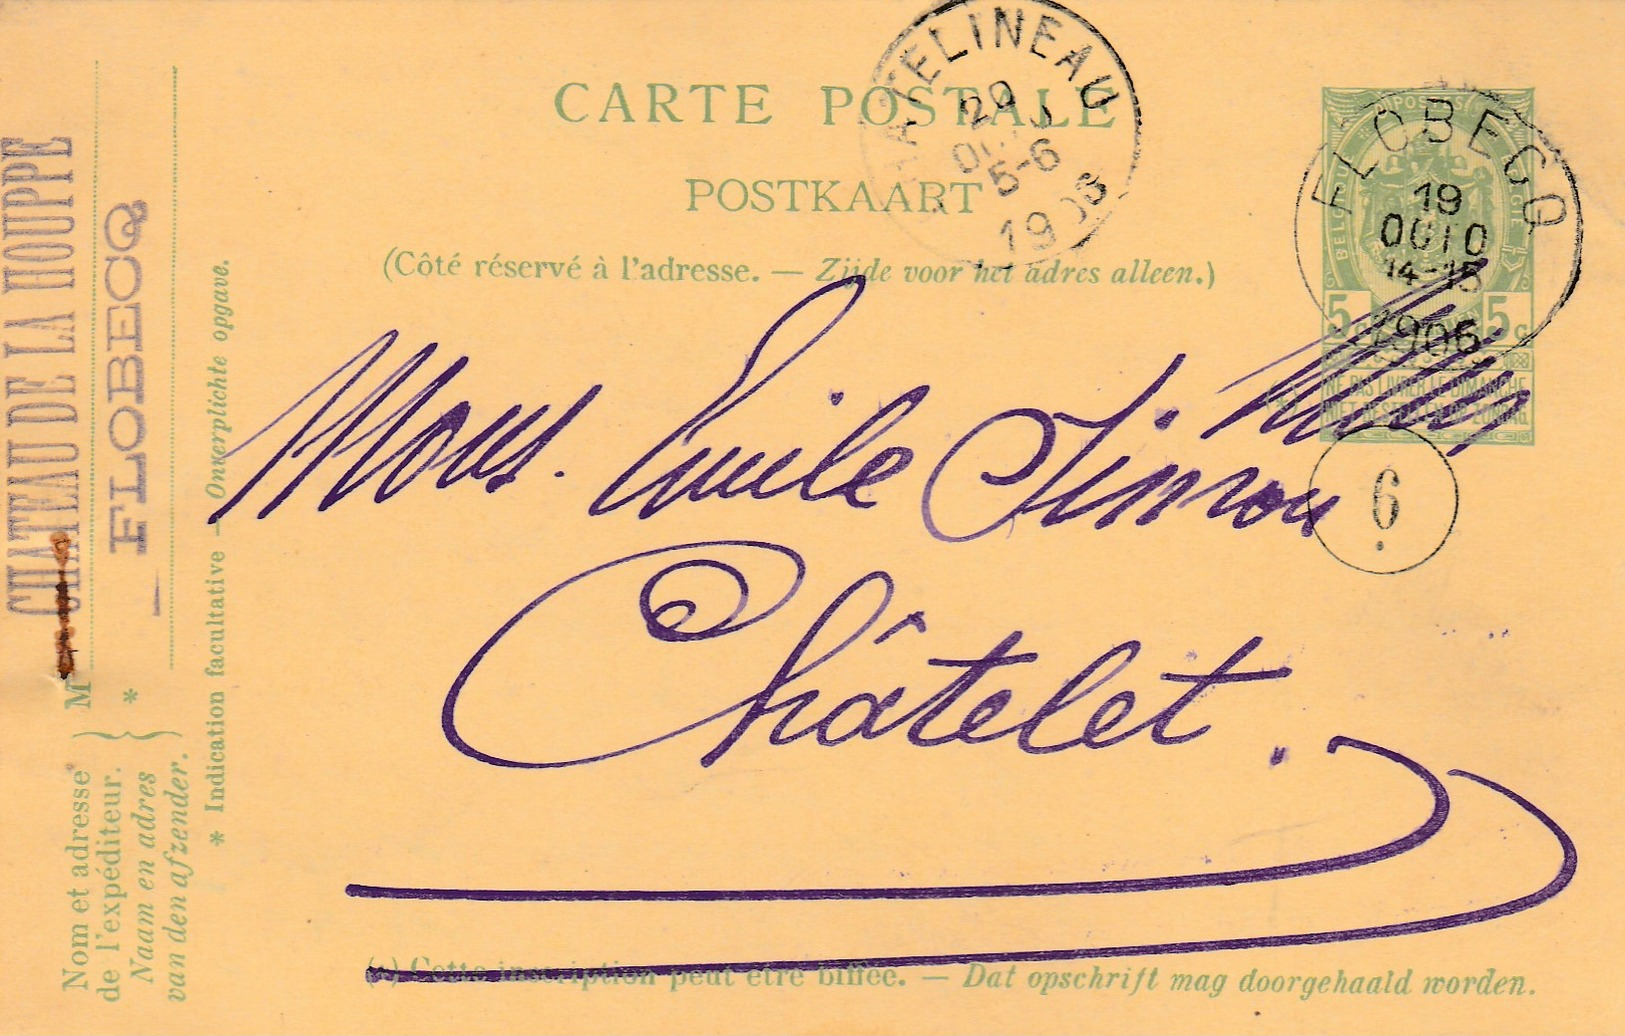 CARTE POSTALE
POSTKAART
(Côté réservé à l'adresse. — Zijde voor het adres alleen.)
CHATELINEAU
20
OCTO
5-6
1906
FLOBECQ
19
OCTO
14-15
1906
POSTES
5 c 5 c
NE PAS LIVRER LE DIMANCHE
NIET BESTELLEN OP ZONDAG
6
Mons. Emile Simon
Châtelet.
(*) Cette inscription peut être biffée. — Dat opschrift mag doorgehaald worden.
CHATEAU DE LA HOUPPE
FLOBECQ
M
*
Nom et adresse
de l'expéditeur.
Naam en adres
van den afzender.
* Indication facultative — Onverplichte opgave.